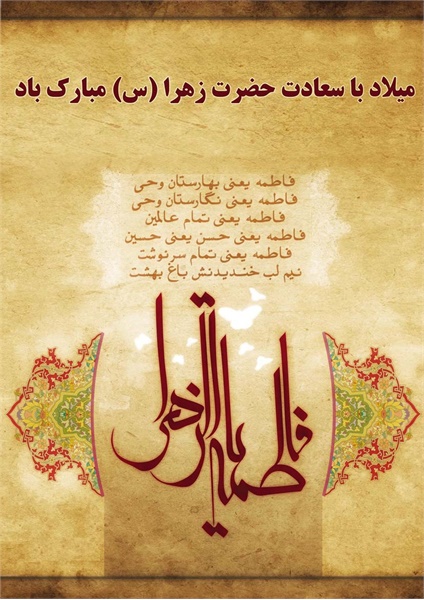 میلاد با سعادت حضرت زهرا (س) مبارک باد
فاطمه یعنی بهارستان وحی
فاطمه یعنی نگارستان وحی
فاطمه یعنی تمام عالمین
فاطمه یعنی حسن یعنی حسین
فاطمه یعنی تمام سرنوشت
نیم لب خندیدنش باغ بهشت
فاطمه الزهرا